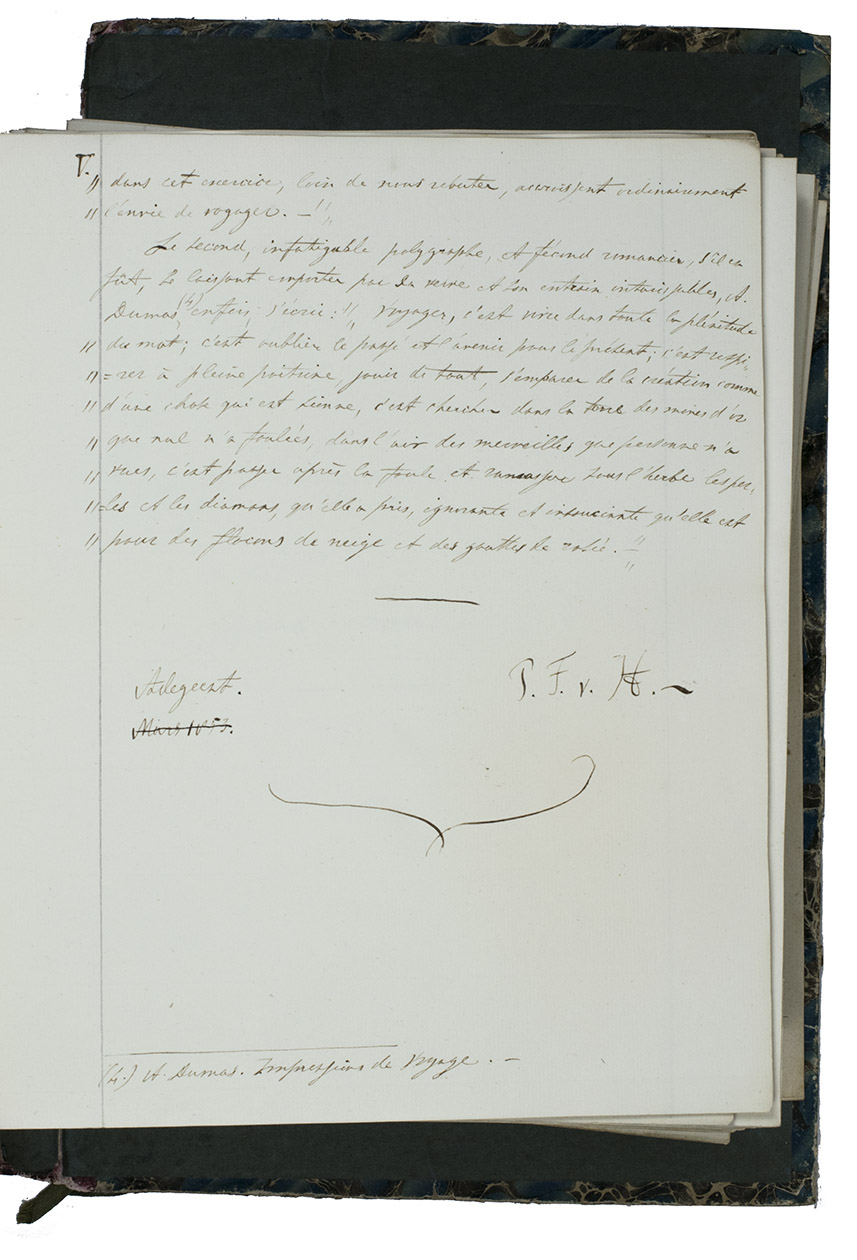 V.
" dans cet exercice, loin de nous rebuter, accroissent ordinairement
" l'envie de voyager. — "
Le second, infatigable polygraphe, et fécond romancier, s'il en
fût, se laissant emporter par sa verve et son entrain intarissables, A.
Dumas (4) enfin, s'écrie: " Voyager, c'est vivre dans toute la plénitude
" du mot; c'est oublier le passé et l'avenir pour le présent; c'est respi=
" =rer à pleine poitrine jouir de tout, s'emparer de la création comme
" d'une chose qui est sienne, c'est chercher dans la terre des mines d'or
" que nul n'a foulées, dans l'air des merveilles que personne n'a
" vues, c'est passer après la foule et ramasser sous l'herbe les per=
" =les et les diamans, qu'elle a pris, ignorante et insouciante qu'elle est
" pour des flocons de neige et des gouttes de rosée. — "
P. F. v. H. —
Mars 1853.
(4.) A. Dumas. Impressions de Voyage. —